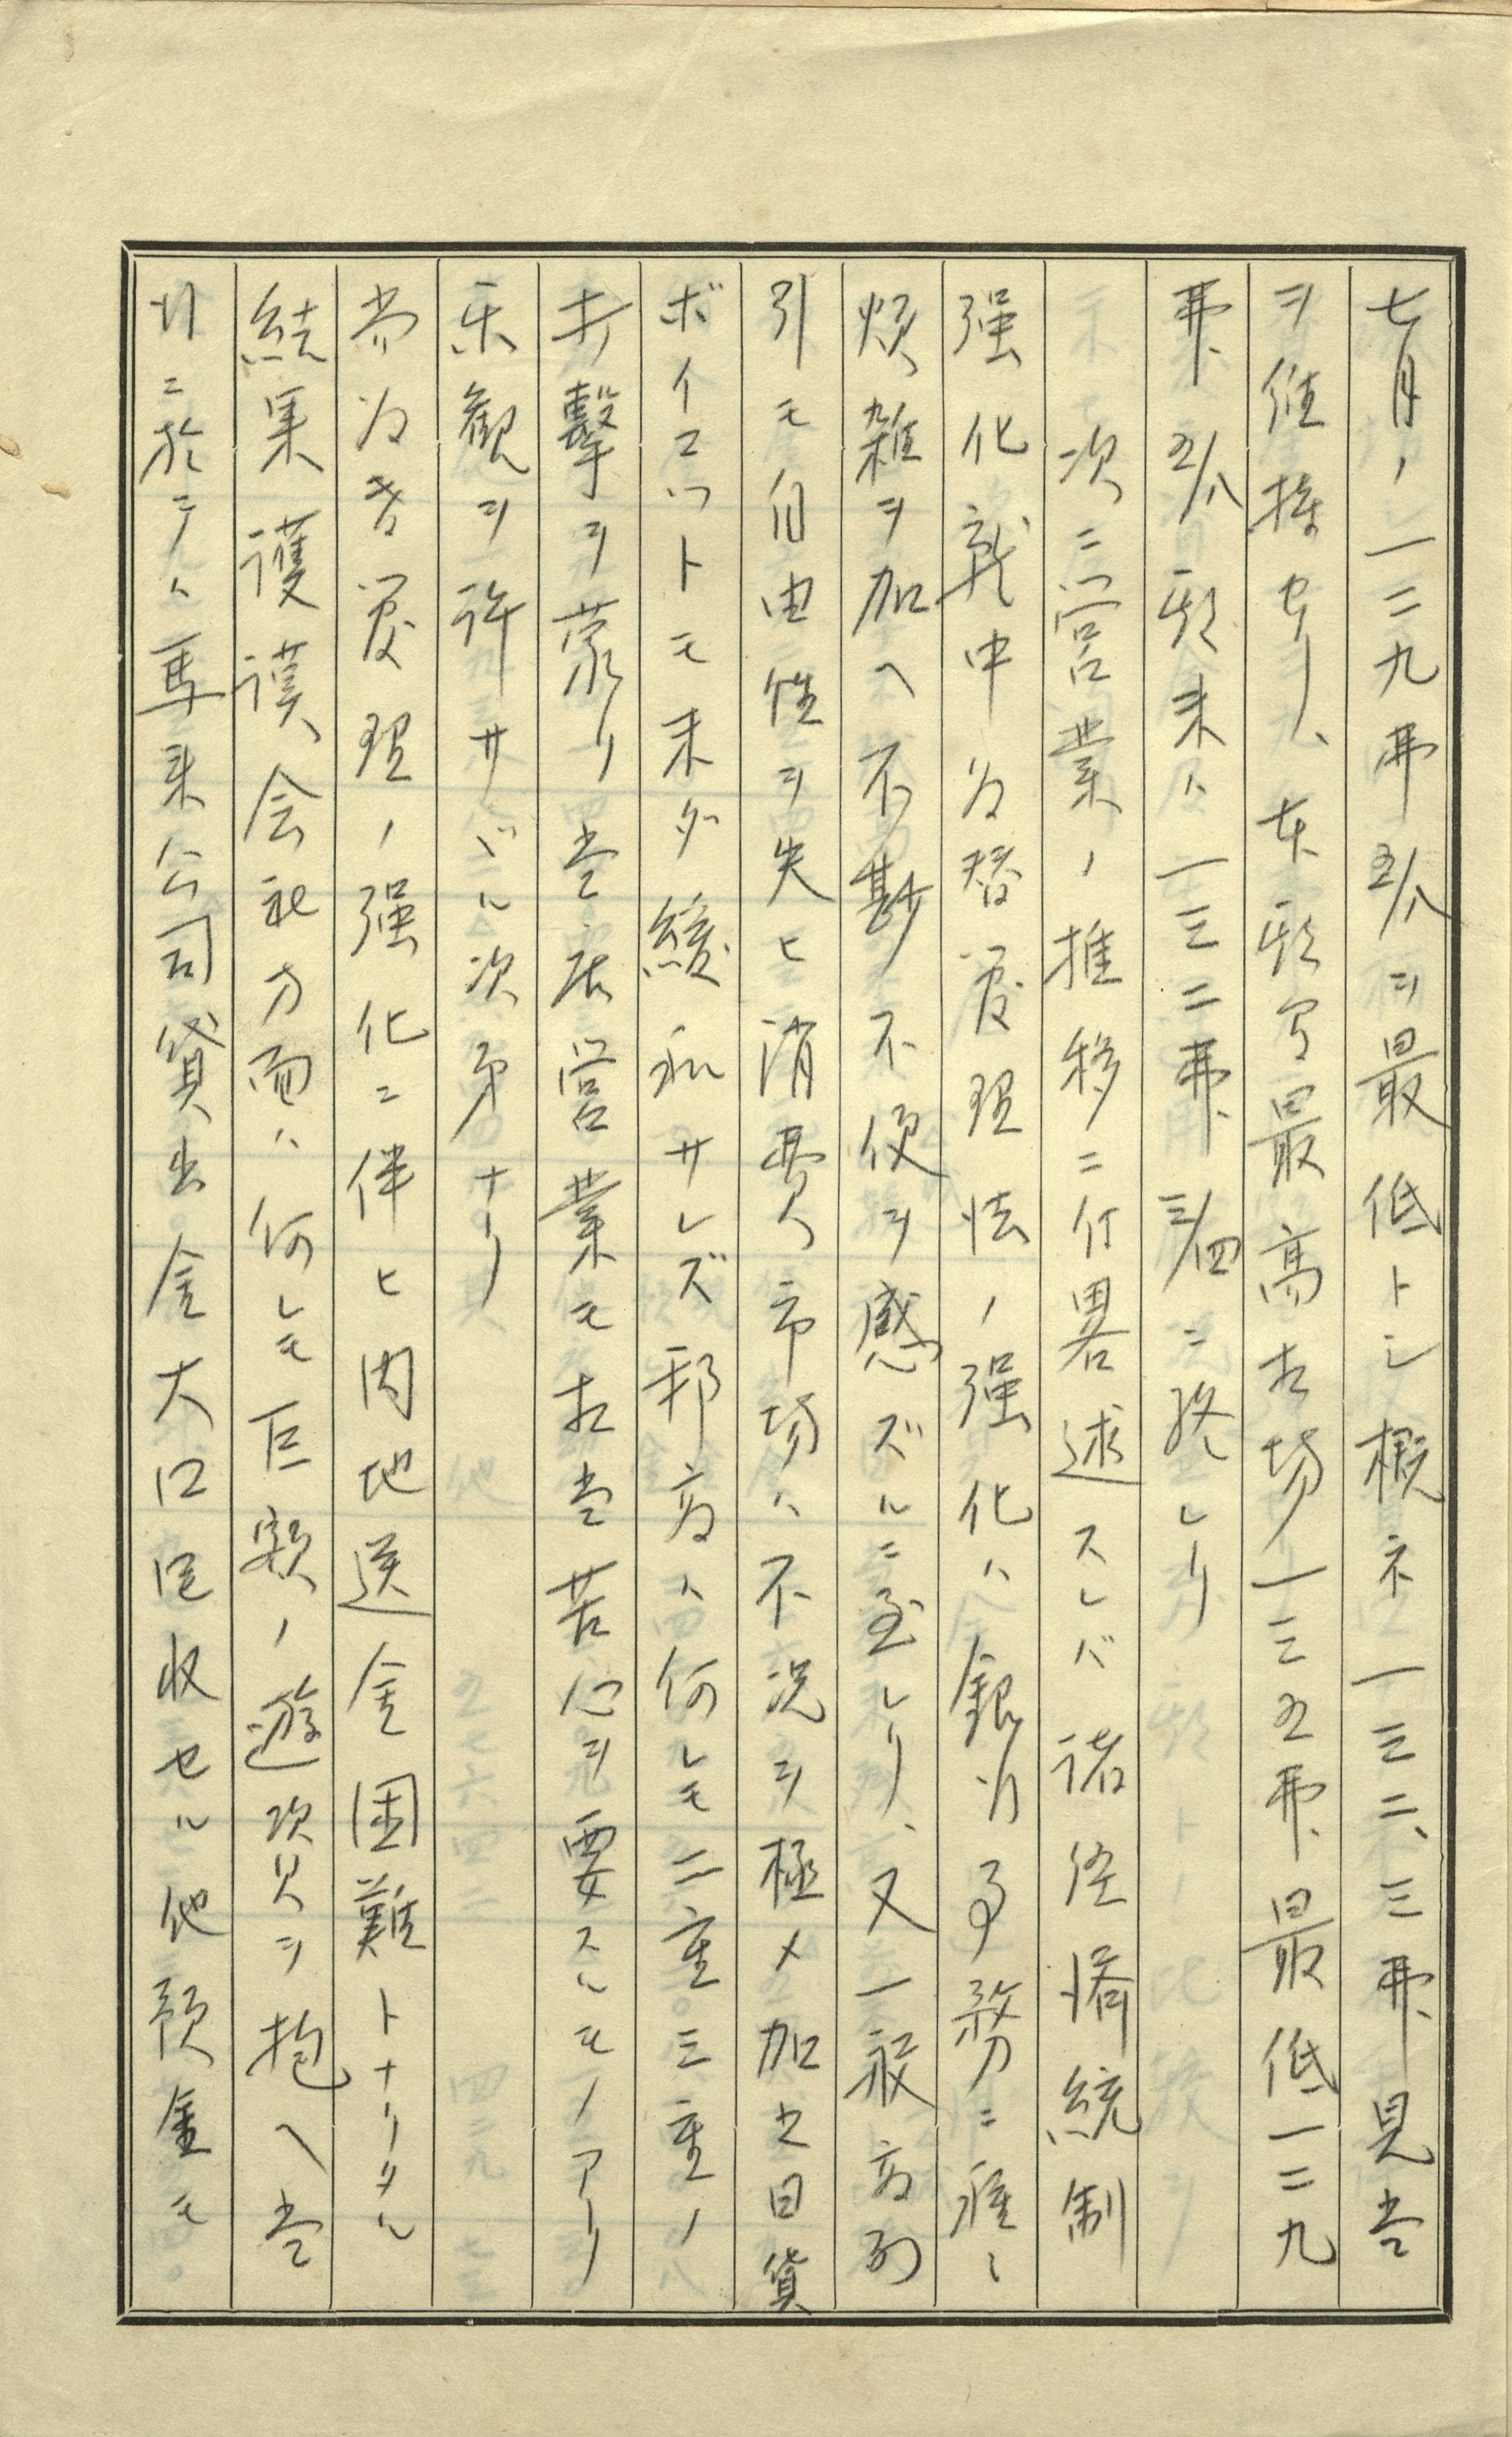 七月ノ一二九弗五/八ヲ最低トシ概ネ一三二、三弗見当
ヲ維持セリ、本期中最高相場一三五弗、最低一二九
弗、五/八期末ハ一三二弗、三/四ニ終レリ
次ニ営業ノ推移ニ付畧述スレバ諸経済統制
强化就中為替管理法ノ强化ハ銀行事務ニ種々
煩雑ヲ加ヘ不尠不便ヲ感ズルニ至レリ、又一般商取
引モ自由性ヲ失ヒ消費市場ハ不況ヲ極メ加之日貨
ボイコットモ未ダ緩和サレズ邦商ハ何レモ二重三重ノ
打撃ヲ蒙リ当店営業モ相当苦心ヲ要スルモノアリ
楽観ヲ許サヾル次第ナリ
尚為替管理ノ强化ニ伴ヒ内地送金困難トナリタル
結果護謨会社方面ハ何レモ巨額ノ遊資ヲ抱ヘ当
行ニ於テハ専来公司貸出金大口回収セル他預金モ